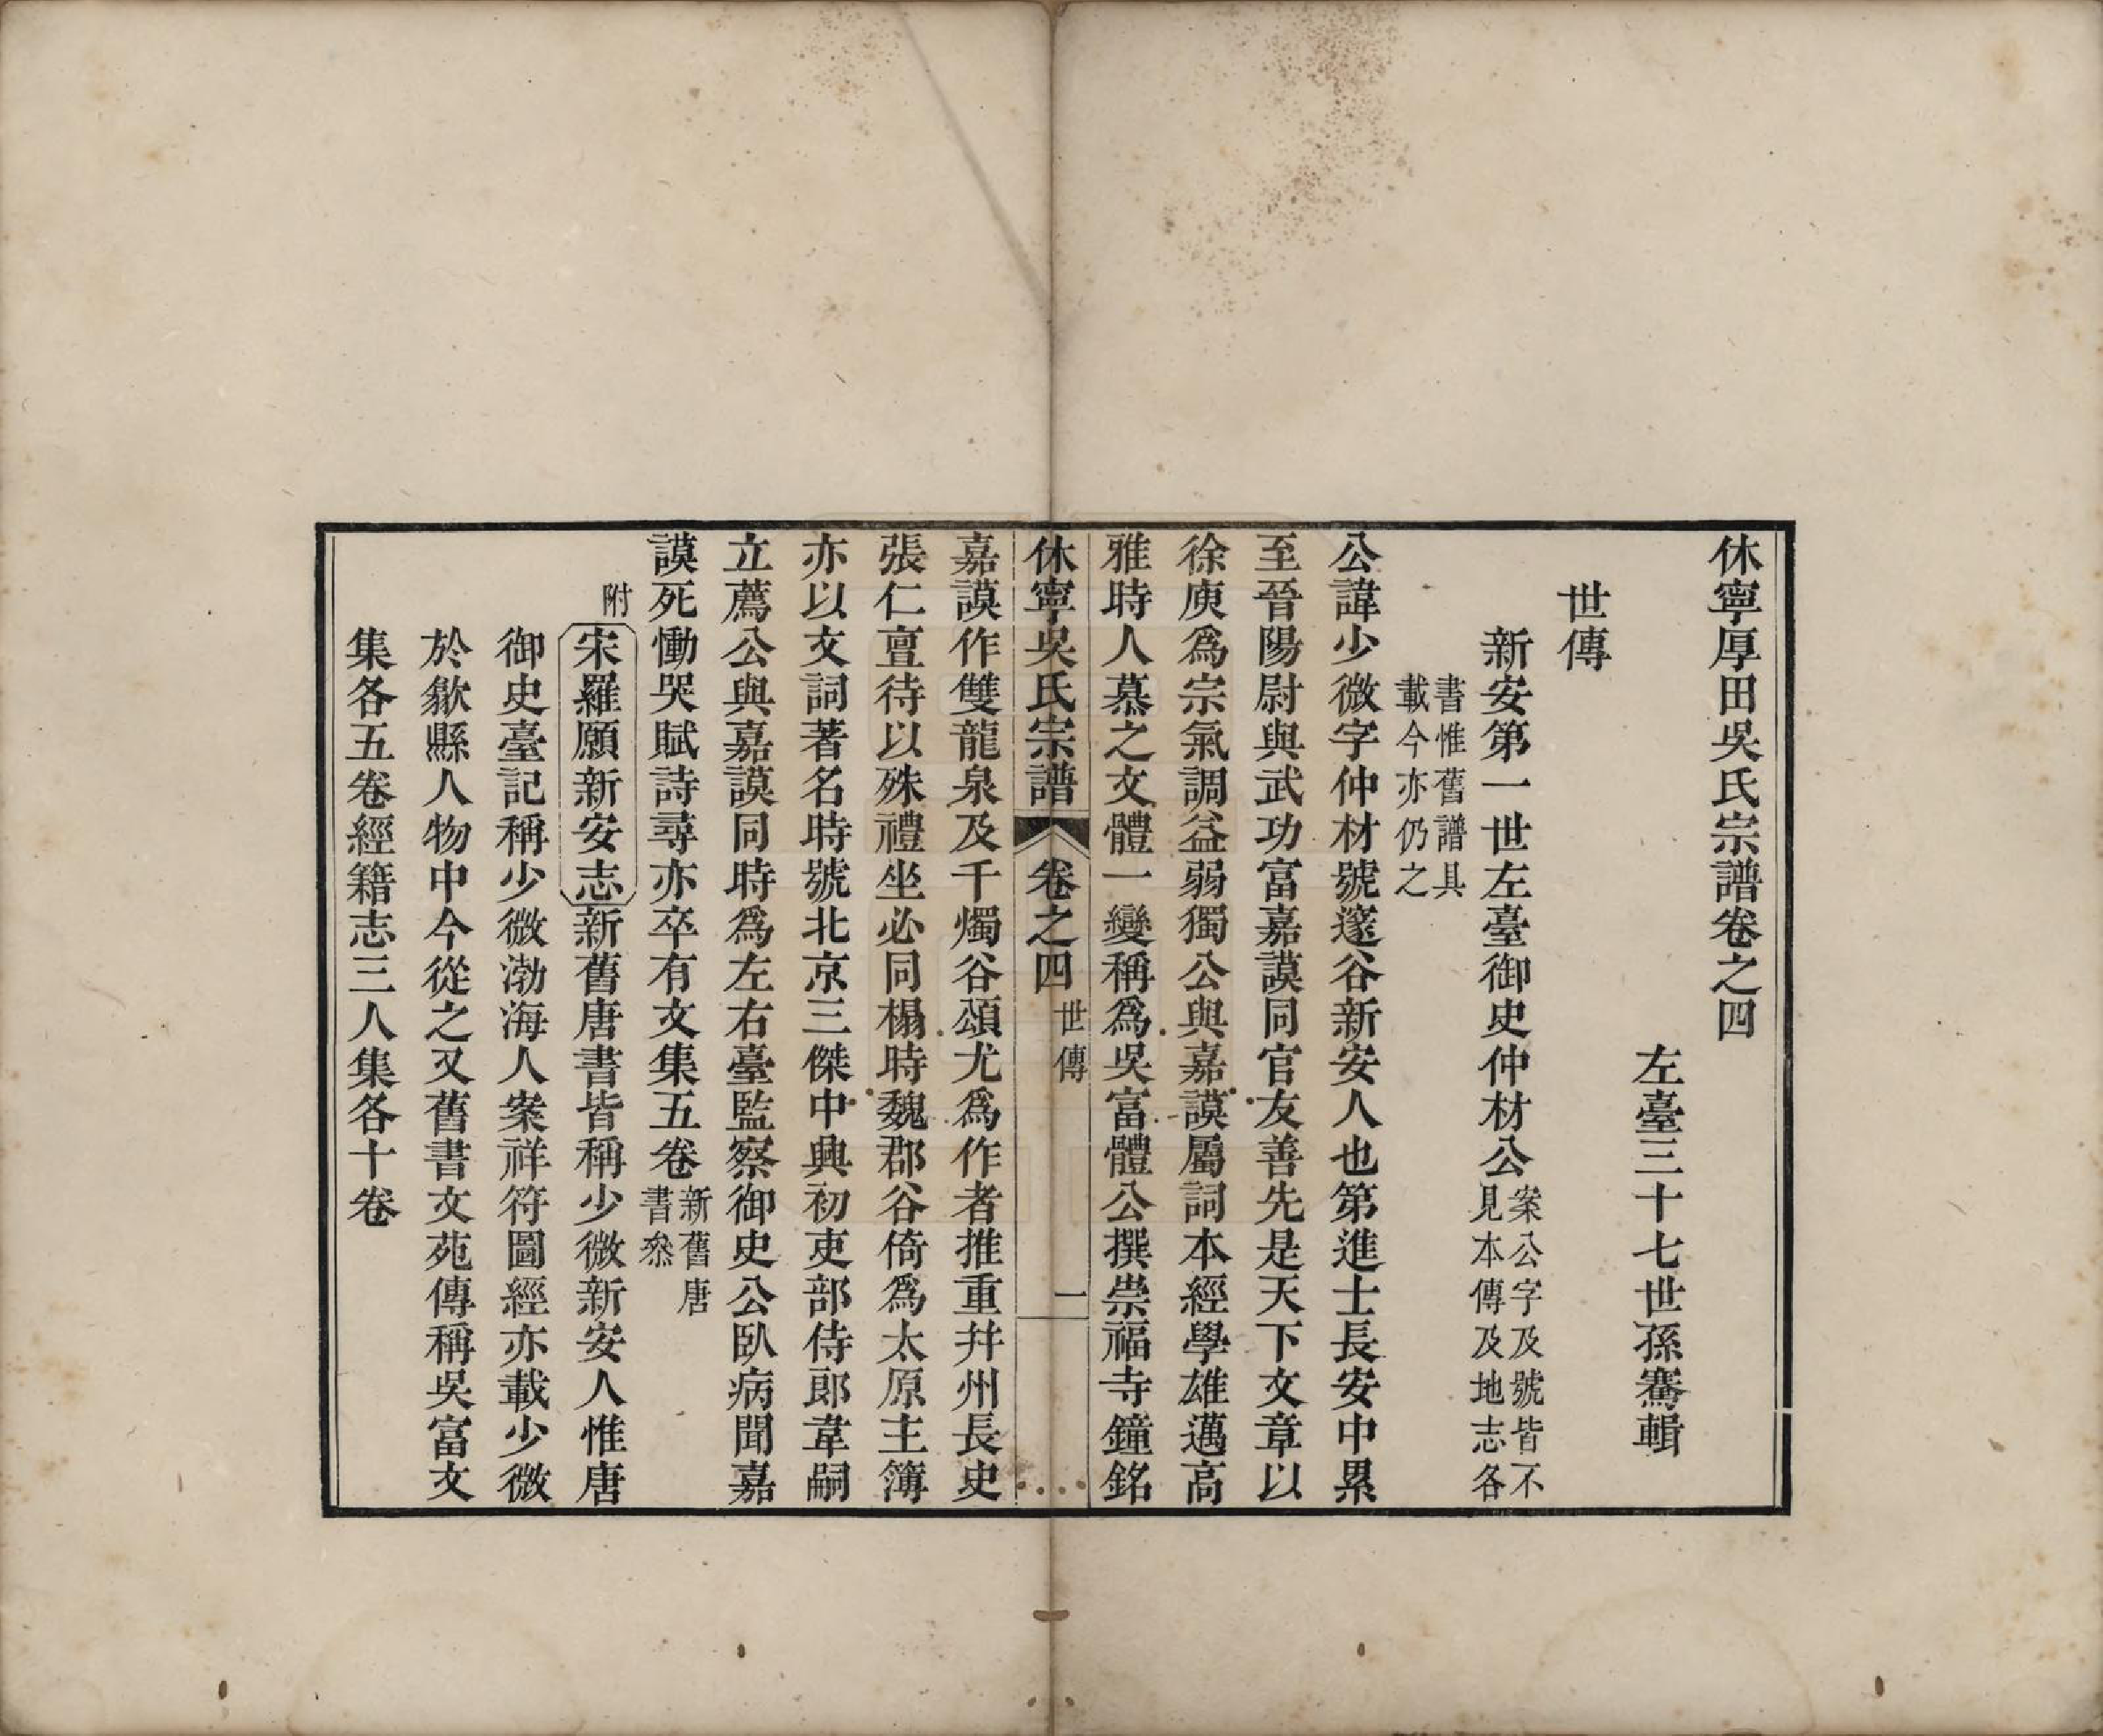 休寧厚田吳氏宗譜卷之四
左臺三十七世孫騫輯
世傳
新安第一世左臺御史仲材公案公字及號皆不見本傳及地志各
書惟舊譜具載今亦仍之
公諱少微字仲材號邃谷新安人也第進士長安中累
至晉陽尉與武功富嘉謨同官友善先是天下文章以
徐庾爲宗氣調益弱獨公與嘉謨屬詞本經學雄邁高
雅時人慕之文體一變稱爲吳富體公撰崇福寺鐘銘
休寧吳氏宗譜 卷之四 世傳 一
嘉謨作雙龍泉及千燭谷頌尤爲作者推重幷州長史
張仁亶待以殊禮坐必同榻時魏郡谷倚爲太原主簿
亦以文詞著名時號北京三傑中興初吏部侍郎韋嗣
立薦公與嘉謨同時爲左右臺監察御史公臥病聞嘉
謨死慟哭賦詩尋亦卒有文集五卷新舊唐書叅
附宋羅願新安志新舊唐書皆稱少微新安人惟唐
御史臺記稱少微渤海人案祥符圖經亦載少微
於歙縣人物中今從之又舊書文苑傳稱吳富文
集各五卷經籍志三人集各十卷